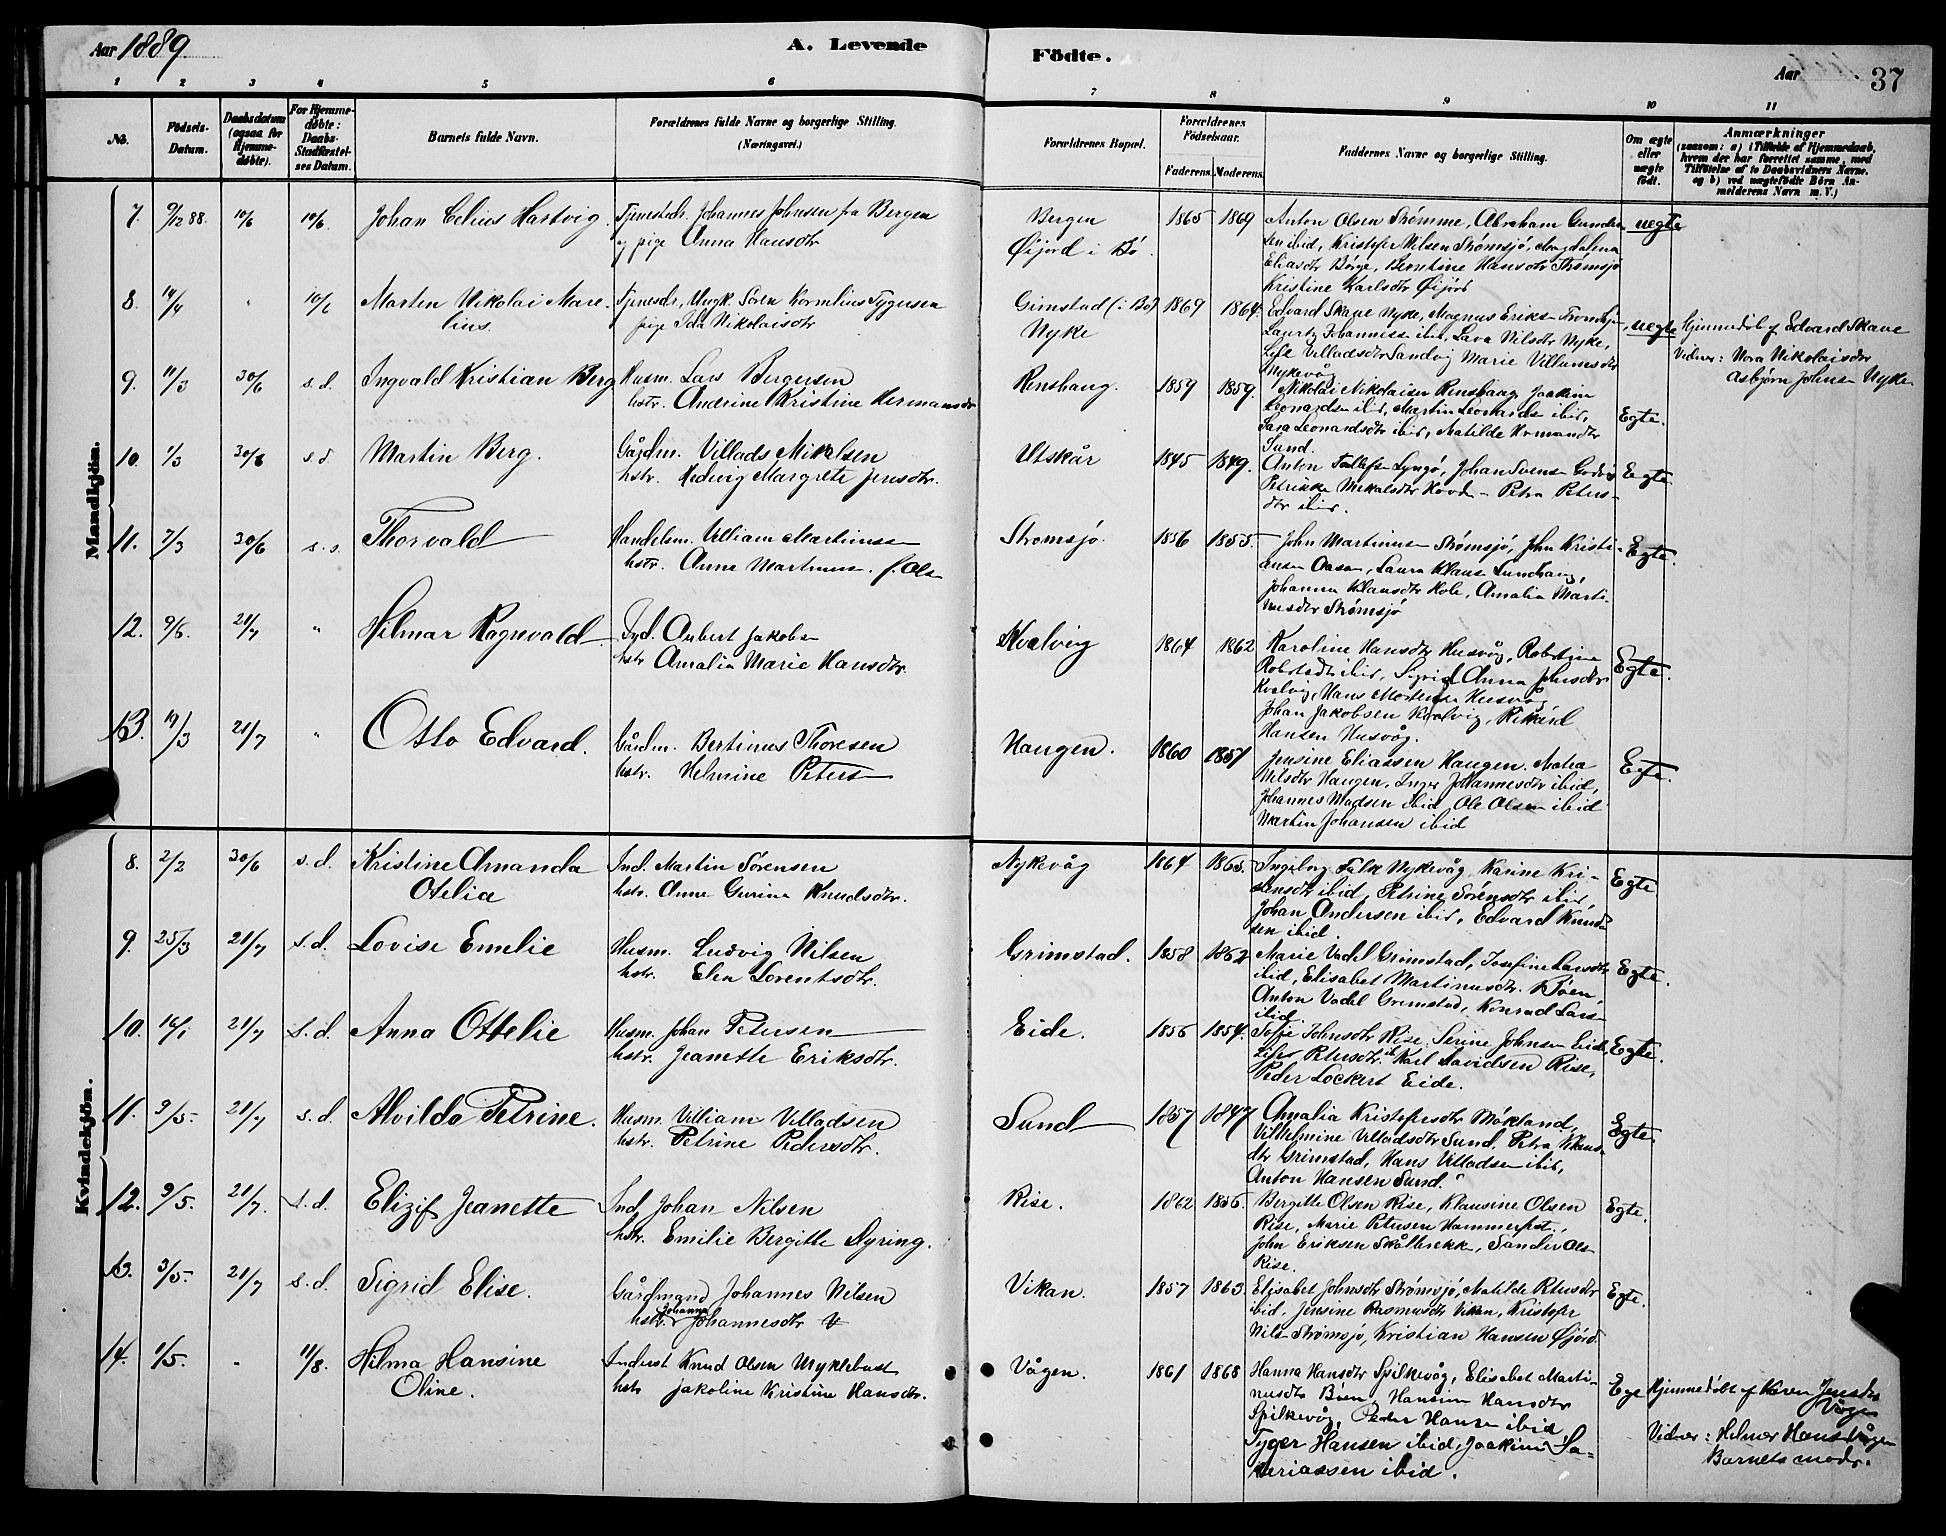 Aar 1889.
A. Levende
Födte.
Aar
37
1 2 3 4 5 6 7 8 9 10 11
No.
Födsels-
Datum.
Daabsdatum
(ogsaa for
Hjemme-
döbte).
For Hjemme-
døbte:
Daabs-
Stadfæstel-
ses Datum.
Barnets fulde Navn.
Forældrenes fulde Navne og borgerlige Stilling.
(Næringsvei.)
Forældrenes Bopæl.
Forældrenes
Födselsaar.
Faderens. Moderens.
Faddernes Navne og borgerlige Stilling.
Om ægte
eller
uægte
födt.
Anmærkninger
(saasom: a) i Tilfælde af Hjemmedaab,
hvem der har forrettet samme, med
Tilföielse af to Daabsvidners Navne.
og b) ved uægtefödte Börn An-
melderens Navn m. V.)
Mandkjön.
7. 9/12 88. 10/6 10/6. Johan Celius Hartvig. Tjenestedr. Johannes Johnsen fra Bergen
og pige Anna Hansdtr
Bergen 1865 1869
Øijord i Bö.
Anton Olsen Strömme, Abraham
ibid, Kristofer Nilsen Strømsjö, Magdalena
Eliasdtr Börge, Berntine Hansdtr Strömsjö
Kristine Karlsdtr Øijord
uegte
8. 14/4 " 10/6 Martin Nikolai Mare-
lius.
Ungk. Sören Kornelius Tygersen
pige Ida Nikolaisdtr
Grimstad (i Bö) 1869 1864.
Nyke
Edvard Skave Nyke, Magnus Eriksen
Lauritz Johannissen ibid, Lava Nilsdtr Nyke,
Villadsdtr Sandvig Marie Villumsdtr
Nykevåg
uegte
Hjemmedöbt af Edvard Skave
Vidner: Nora Nikolaisdtr
Asbjørn Johnsen Nyke
9. 11/3 30/6 s.d. Ingvald Kristian Berg Husm. Lars Bergersen
hstr. Andrine Kristine Hermansdtr
Renshaug. 1859 1859.
Nikolai Nikolaisen Renshaug, Joakim
Leonardsen ibid, Martin Leonardsen ibid,
Sara Leonardsdtr ibid, Matilde
Sund.
Egte.
10. 1/3 30/6 s.d Martin Berg. Gårdm. Villads Mikalsen
hstr. Hedvig Margrete Jensdtr.
Utskår 1845 1849.
Anton Lyngö, Johan Svensen
Petrikke Mikalsdtr Hovd - Petra Peters-
dtr ibid.
Egte
11. 7/3 30/6 s.d. Thorvald Handelsm. Villiam Martinussen
hstr. Anne Martinus. f. Olsen
Strömsjö. 1856 1855.
John Martinusen Strömsjö, John Kristi-
ansen Aasen, Laura Klausen Sundhaug,
Johanna Klausdtr Hole, Amalia Marti-
nusdtr Strömsjö
Egte.
12. 9/6. 21/7 " Hilmar Ragnvald. Ind. Anbert Jakobsen
hstr Amalia Marie Hansdtr.
Kvalvig 1864 1862
Karoline Hansdtr Husvåg, Robertine
ibid, Sigrid Anna Johnsdtr
Kvalvig, Hans Mortensen Husvåg
Johan Jakobsen Kvalvig, Rikard
Hansen Husvåg.
Egte.
13. 14/3 21/7 " Otto Edvard. Gårdm. Bertinus Thoresen
hstr. Helmine Peters
Haugen. 1860 1857
Jensine Eliassen Haugen. Matea
Nilsdtr Haugen, Inger Johannesdtr ibid,
Johannes Madsen ibid, Ole Olsen ibid
Martin Johansen ibid
Egte.
Kvindekjön.
8. 2/2 30/6 s.d. Kristine Amanda
Otelia
Ind. Martin Sörensen
hstr. Anne Gurine Knudsdtr.
Nykevåg 1864 1865.
Ingeborg Falk Nykevåg, Karine Kri-
stensdtr ibid, Petrine Sörensdtr ibid,
Johan Andersen ibid, Edvard Knud-
sen ibid.
Egte
9. 25/3 21/7 s.d. Lovise Emelie Husm. Ludvig Nilsen
hstr. Elen Lorentsdtr.
Grimstad. 1858 1862
Marie Vadel Grimstad, Josefine Larsdtr
ibid, Elisabet Martinusdtr. Böen,
Anton Vadel Grimstad, Konrad Lars-
ibid.
Egte.
10. 16/1 21/7 s.d. Anna Ottelie Husm. Johan Petersen
hstr. Jeanette Eriksdtr.
Eide. 1856 1854.
Sofie Johnsdtr Rise, Serine Johnsen Eide,
Petersdtr ib Karl Davidsen Rise,
Peder Lockert Eide.
Egte.
11. 9/5. 21/7 s.d. Alvilda Petrine. Husm. Villiam Villadsen
hstr. Petrine Pedersdtr.
Sund 1857 1847
Amalia Kristofersdtr Mökland,
Vilhelmine Villadsdtr Sund. Petra Klaus-
dtr Grimstad, Hans Villadsen ibid,
Anton Hansen Sund.
Egte.
12. 9/5. 21/7. s.d. Elizif Jeanette Ind. Johan Nilsen
hstr. Emilie Bergitte Nyring.
Rise. 1862 1856.
Bergitte Olsen Rise, Klausine Olsen
Rise, Marie Petersen Hammerfest,
John Eriksen Skålbrekk, Sander Ols-
Rise.
Egte.
13. 3/5. 21/7 s.d. Sigrid Elise. Gårdmand Johannes Nilsen
hstr. Johanna Johannesdtr
Vikan. 1857 1863.
Elisabet Johnsdtr Strömsjö, Matilde Petersdtr
ibid, Jensine Rasmusdtr Vikan, Kristofer
Nils- Strömsjö, Kristian Hansen Øjord
Egte.
14. 1/5. " 11/8. Hilma Hansine
Oline.
Inderst Knud Olsen Myklebust
hstr Jakoline Kristine Hansdtr.
Vågen. 1861 1868
Hanna Hansdtr Spilkevåg, Elisabet Marti-
nusdtr Böen, Hansine Hansdtr
Spilkevåg, Peder Hansen ibid
Tyger Hansen ibid, Joakim Sa-
kariassen ibid.
Egte
Hjemmedöbt af Karen Jensdtr
Vågen
Vidner: Helmer Hans Vågen
Barnets moder.